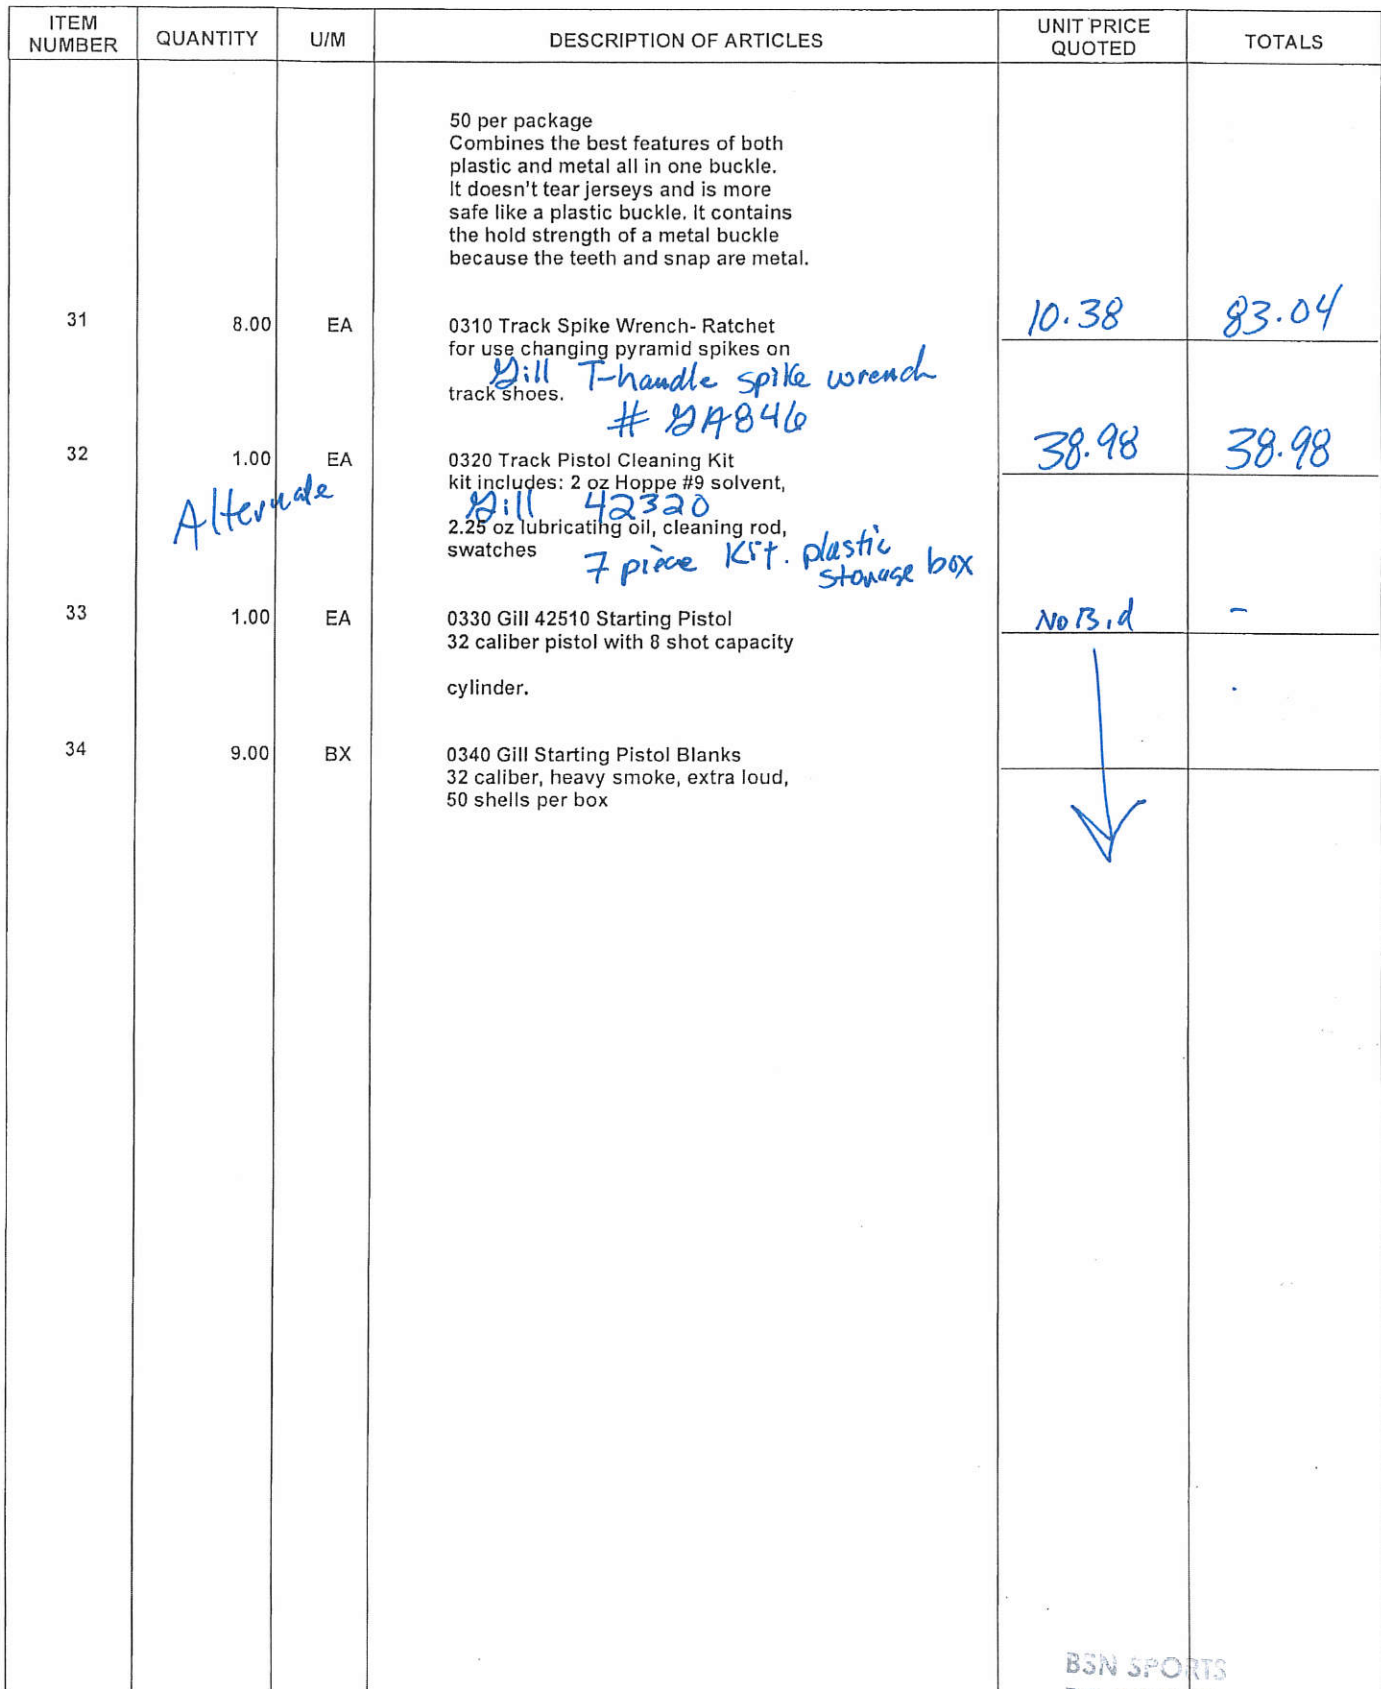 ITEM NUMBER QUANTITY U/M DESCRIPTION OF ARTICLES UNIT PRICE QUOTED TOTALS
50 per package
Combines the best features of both
plastic and metal all in one buckle.
It doesn't tear jerseys and is more
safe like a plastic buckle. It contains
the hold strength of a metal buckle
because the teeth and snap are metal.
31 8.00 EA 0310 Track Spike Wrench- Ratchet 10.38 83.04
for use changing pyramid spikes on
Gill T-handle spike wrench
track shoes.
# GA846
32 1.00 EA 0320 Track Pistol Cleaning Kit 38.98 38.98
kit includes: 2 oz Hoppe #9 solvent,
Alternate Gill 42320
2.25 oz lubricating oil, cleaning rod,
swatches
7 piece Kit. plastic
storage box
33 1.00 EA 0330 Gill 42510 Starting Pistol No Bid -
32 caliber pistol with 8 shot capacity
cylinder.
34 9.00 BX 0340 Gill Starting Pistol Blanks
32 caliber, heavy smoke, extra loud,
50 shells per box
BSN SPORTS